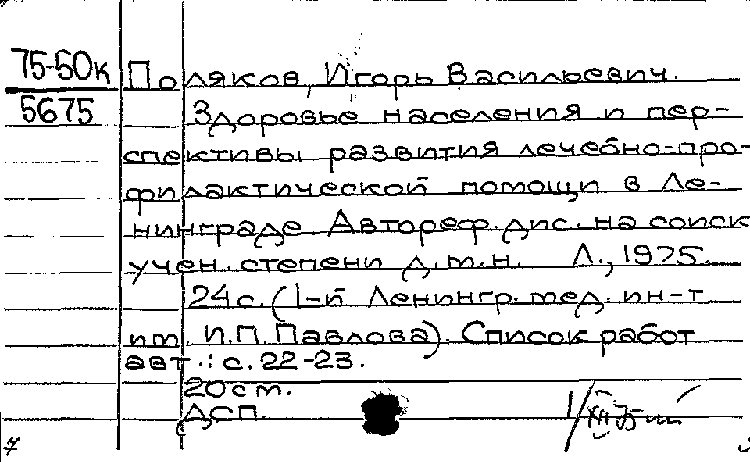 75-50к
5675
Поляков, Игорь Васильевич.
Здоровье населения и пер-
спективы развития лечебно-про-
филактической помощи в Ле-
нинграде. Автореф. дис. на соиск.
учен. степени д.м.н. Л., 1975.
24с. (1-й Ленингр. мед. ин-т
им. И.П. Павлова). Список работ
авт.: с. 22-23.
20 см.
ДСП.
7